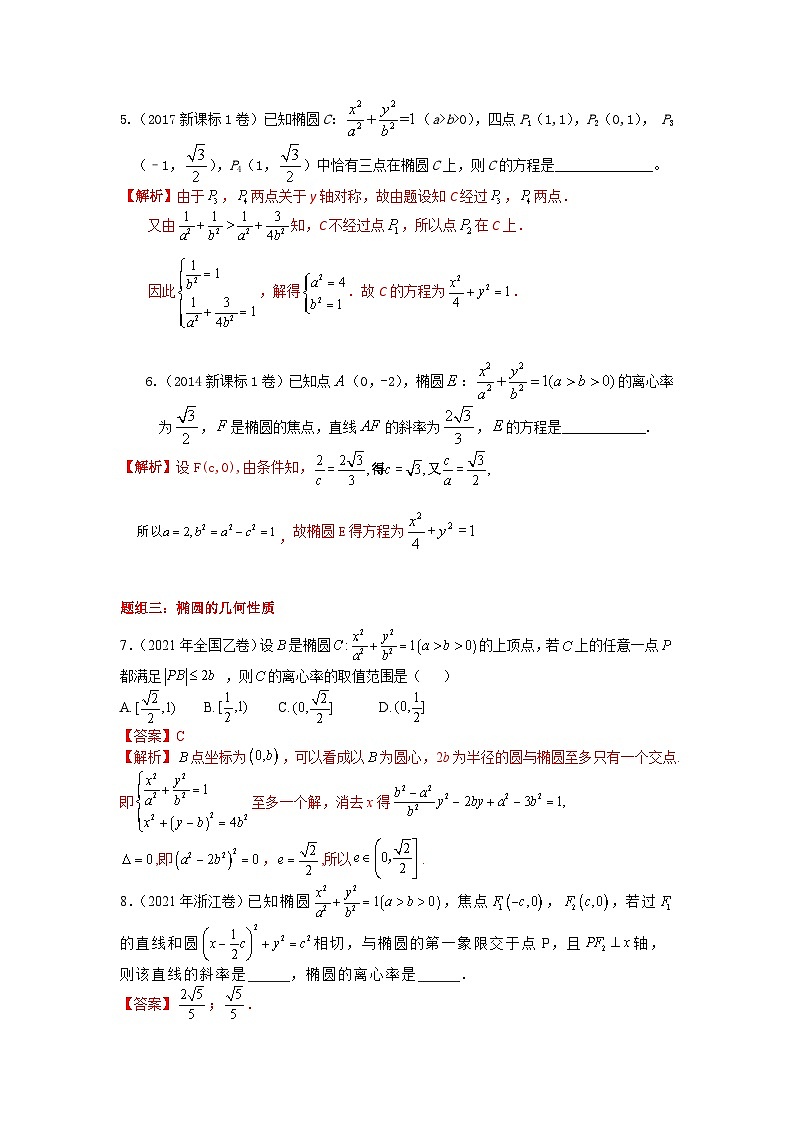 5.（2017 新课标 1 卷）已知椭圆 C：x²/a²+y²/b²=1（a>b>0），四点 P₁（1,1），P₂（0,1）， P₃
（﹣1，√3/2），P₄（1，√3/2）中恰有三点在椭圆 C 上，则 C 的方程是______________。
【解析】由于 P₃，P₄ 两点关于 y 轴对称，故由题设知 C 经过 P₃，P₄ 两点．
又由 1/a²+1/b²>1/a²+3/4b² 知，C 不经过点 P₁，所以点 P₂ 在 C 上．
因此{1/b²=1, 1/a²+3/4b²=1，解得{a²=4, b²=1．故 C 的方程为 x²/4+y²=1．
6.（2014 新课标 1 卷）已知点 A（0,-2），椭圆 E：x²/a²+y²/b²=1(a>b>0) 的离心率
为 √3/2，F 是椭圆的焦点，直线 AF 的斜率为 2√3/3，E 的方程是____________.
【解析】设 F(c,0),由条件知，2/c=2√3/3,得c=√3,又c/a=√3/2,
所以a=2,b²=a²-c²=1，故椭圆 E 得方程为 x²/4+y²=1
题组三：椭圆的几何性质
7.（2021 年全国乙卷）设 B 是椭圆 C:x²/a²+y²/b²=1(a>b>0) 的上顶点，若 C 上的任意一点 P
都满足 |PB|≤2b ，则 C 的离心率的取值范围是（ ）
A. [√2/2,1) B. [1/2,1) C. (0,√2/2] D. (0,1/2]
【答案】C
【解析】B 点坐标为 (0,b)，可以看成以 B 为圆心，2b 为半径的圆与椭圆至多只有一个交点.
即{x²/a²+y²/b²=1, x²+(y-b)²=4b² 至多一个解，消去 x 得 (b²-a²)/b² y²-2by+a²-3b²=1,
Δ=0,即(a²-2b²)²=0，e=√2/2,所以e∈(0,√2/2].
8.（2021 年浙江卷）已知椭圆 x²/a²+y²/b²=1(a>b>0)，焦点 F₁(-c,0)，F₂(c,0)，若过 F₁
的直线和圆 (x-1/2c)²+y²=c² 相切，与椭圆的第一象限交于点 P，且 PF₂⊥x 轴，
则该直线的斜率是______，椭圆的离心率是______．
【答案】2√5/5；√5/5．